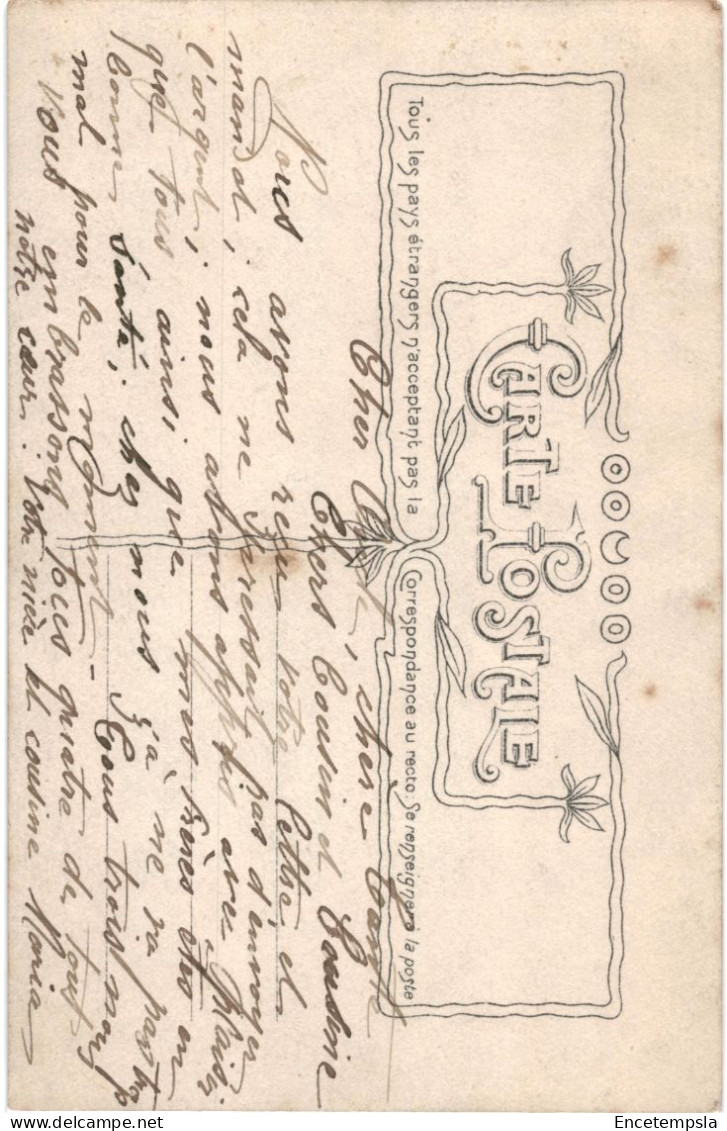 CARTE POSTALE
Tous les pays étrangers n'acceptant pas la Correspondance au recto: Se renseigner à la poste
Cher Oncle, chère Tante
Chers Cousin et Cousine
Nous avons reçu votre lettre et
mandat, cela ne pressait pas d'envoyer
l'argent; nous avons appris avec plaisir
que tous ainsi que mes frères êtes en
bonne santé; chez nous ça ne va pas trop
mal pour le moment. Tous trois nous
vous embrassons tous quatre de tout
notre cœur. Votre nièce et cousine Maria
Encetempsla